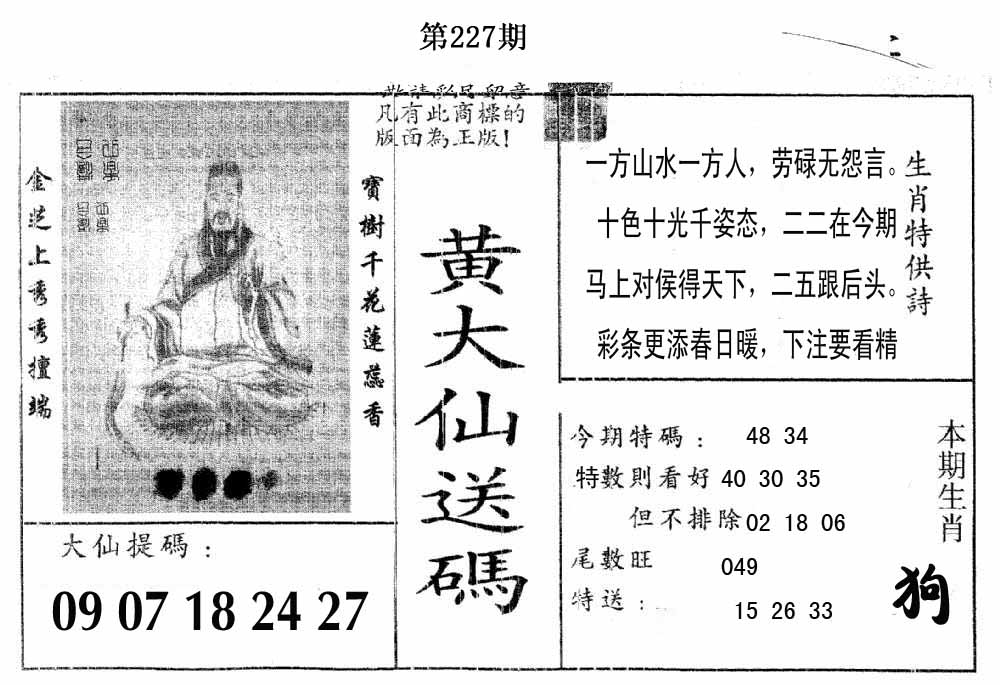 第227期
敬請彩民留意
凡有此商標的
版面為正版!
金芝上秀秀擅端
寶樹千花蓮蕊香
黃大仙送碼
一方山水一方人，劳碌无怨言。
十色十光千姿态，二二在今期
马上对侯得天下，二五跟后头。
彩条更添春日暖，下注要看精
生肖特供詩
大仙提碼：
09 07 18 24 27
今期特碼： 48 34
特數則看好 40 30 35
但不排除 02 18 06
尾數旺 049
特送： 15 26 33
本期生肖
狗